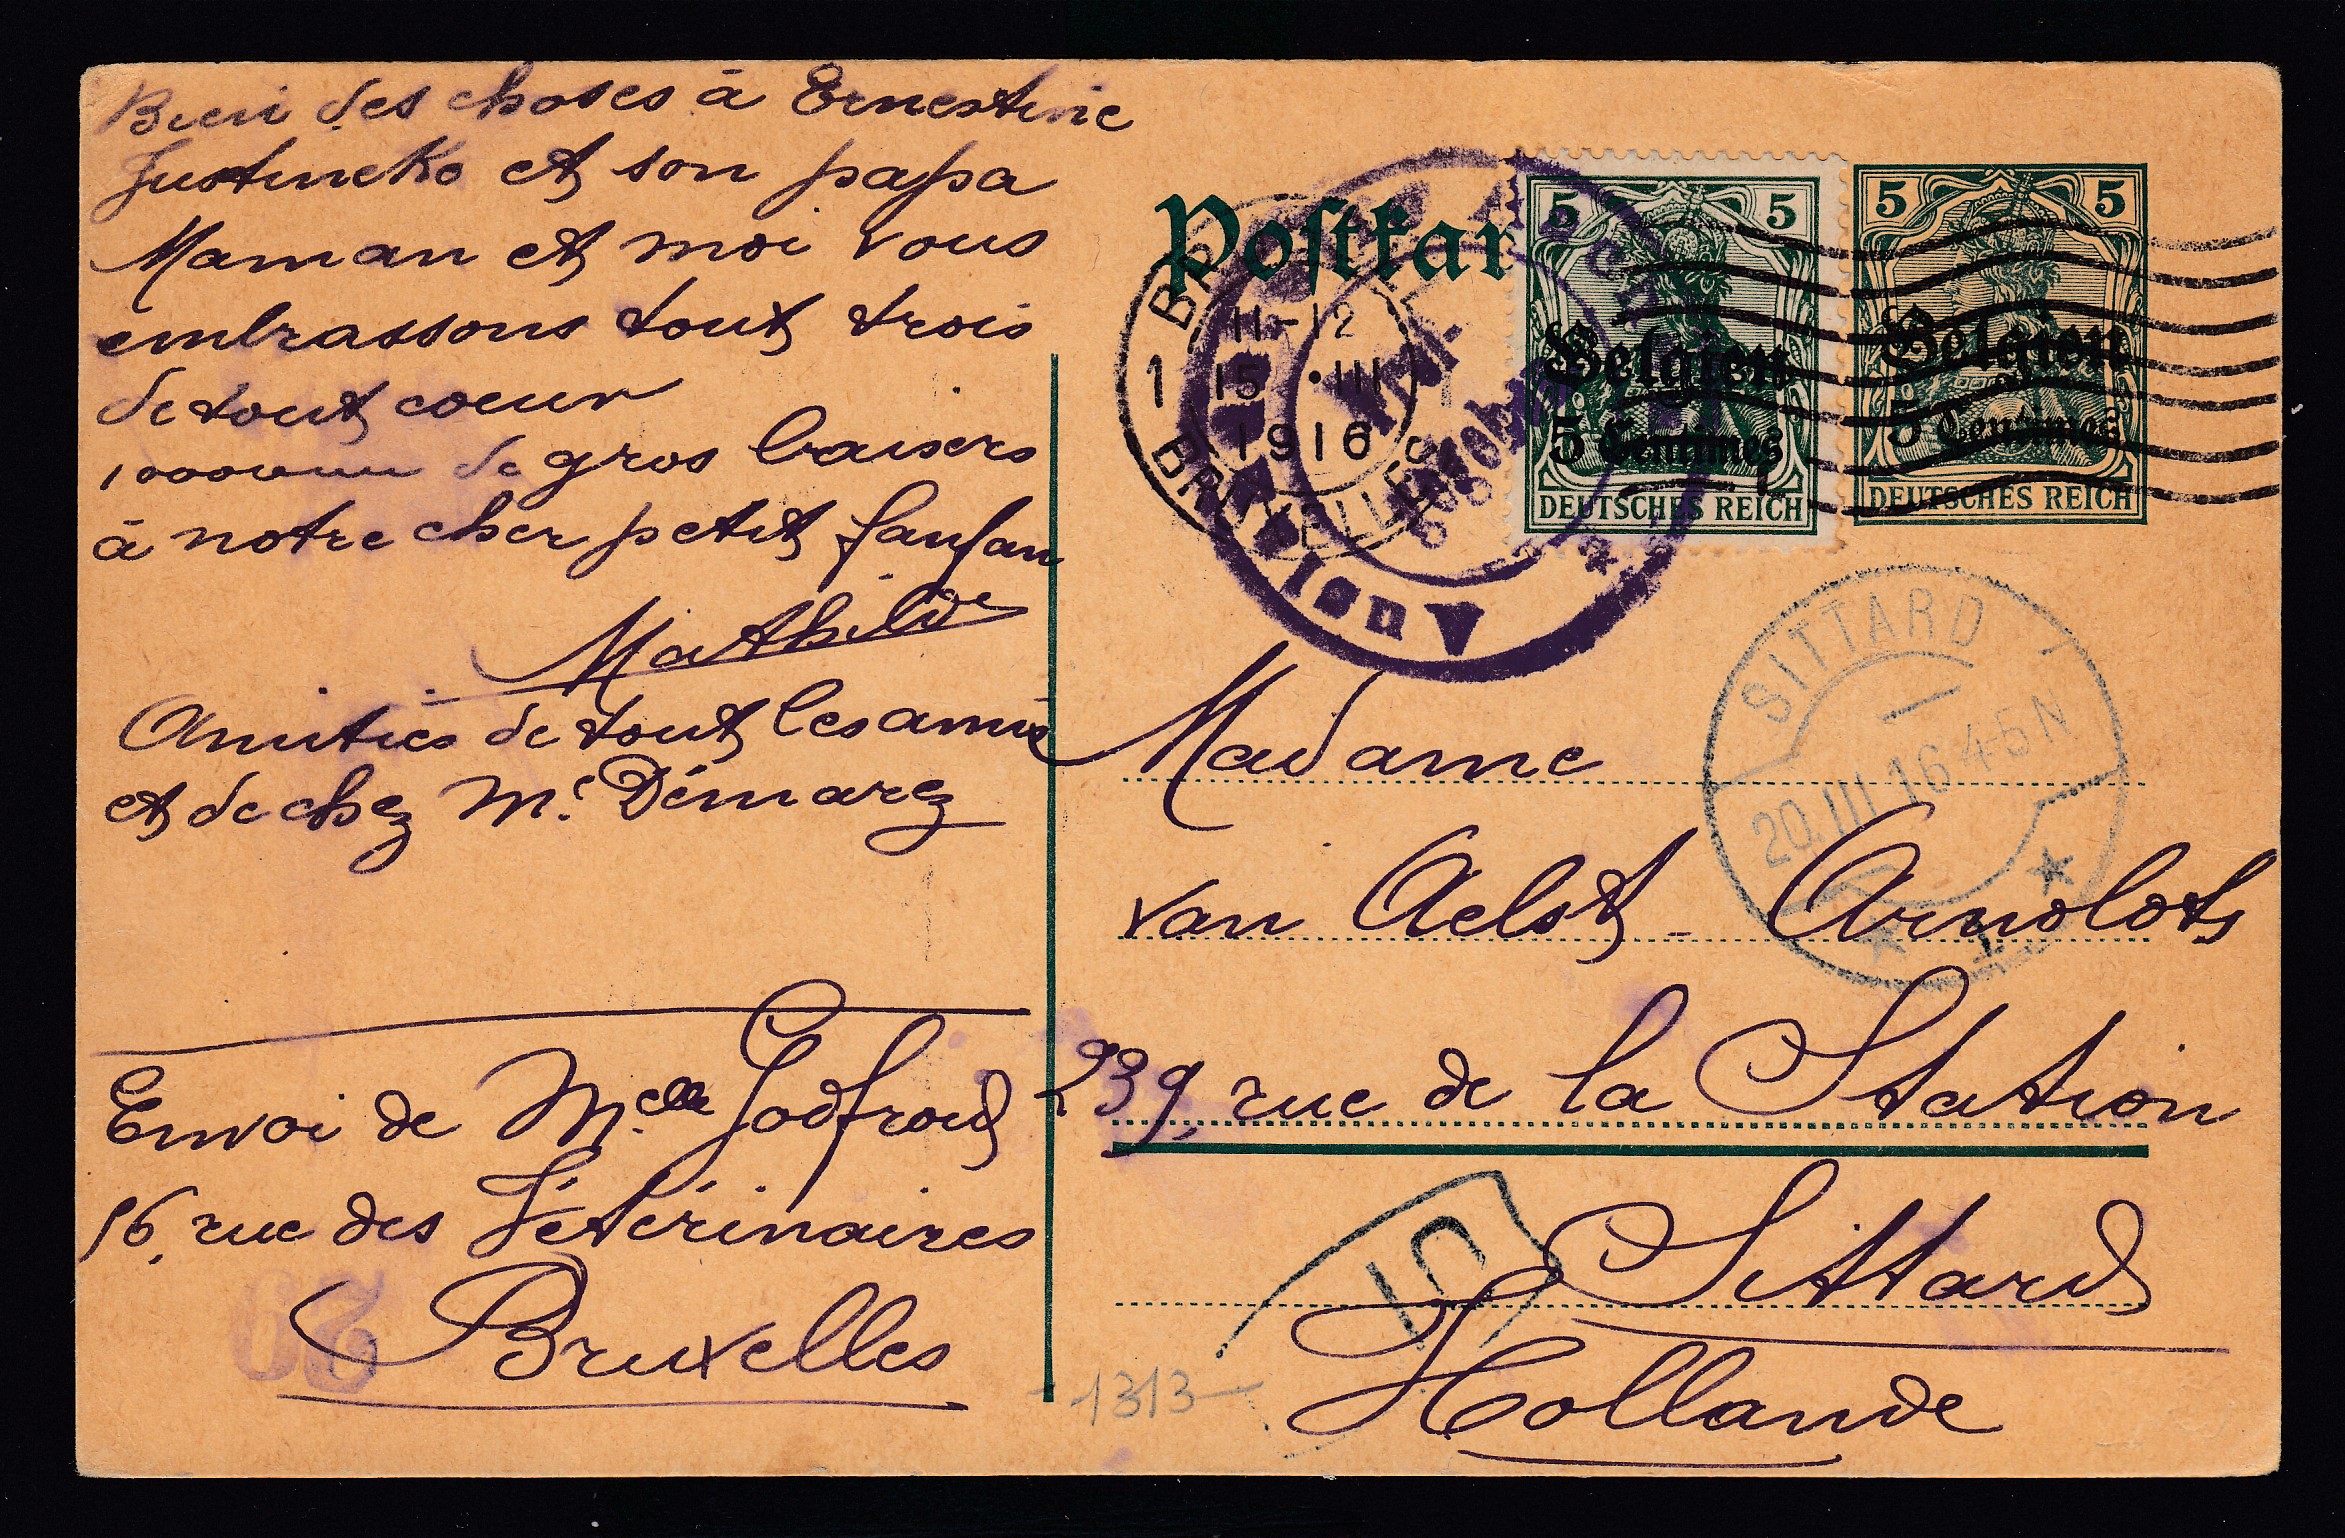 Bien des choses à Ernestine
Justineke et son papa
Maman et moi vous
embrassons tout trois
de tout coeur
de gros baisers
à notre cher petit fanfan
Mathilde
Amitiés de tout les amis
et de chez Mr. Démarez
Envoi de Melle Godfroid
16, rue des Vétérinaires
Bruxelles
Postkar
5 5
Belgien
5 Centimes
DEUTSCHES REICH
5 5
Belgien
5 Centimes
DEUTSCHES REICH
1
11-12
15 •III
1916
SITTARD
20.III.16 4-5N
Madame
van Aelst - Arnolots
239, rue de la Station
Sittard
Hollande
1313